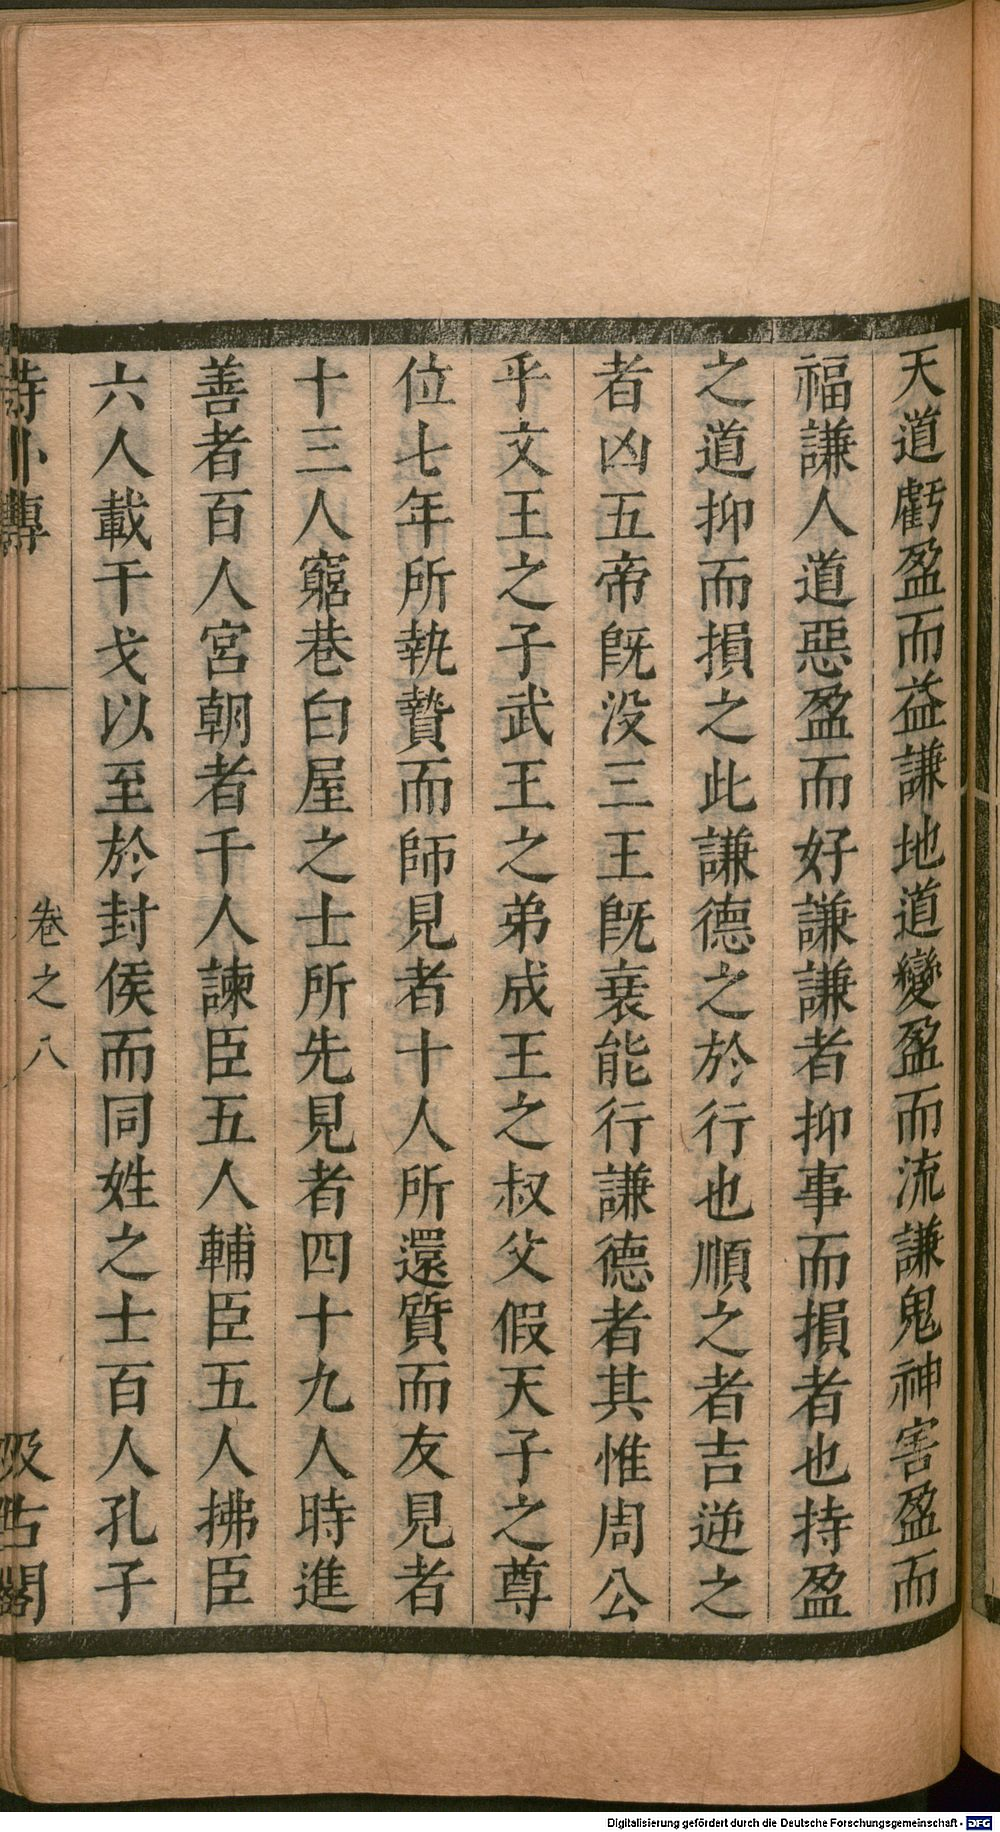 天道虧盈而益謙地道變盈而流謙鬼神害盈而
福謙人道惡盈而好謙謙者抑事而損者也持盈
之道抑而損之此謙德之於行也順之者吉逆之
者凶五帝旣没三王旣衰能行謙德者其惟周公
乎文王之子武王之弟成王之叔父假天子之尊
位七年所執贄而師見者十人所還質而友見者
十三人窮巷白屋之士所先見者四十九人時進
善者百人宮朝者千人諫臣五人輔臣五人拂臣
六人載干戈以至於封侯而同姓之士百人孔子
詩外傳
卷之八
汲古閣
Digitalisierung gefördert durch die Deutsche Forschungsgemeinschaft - DFG